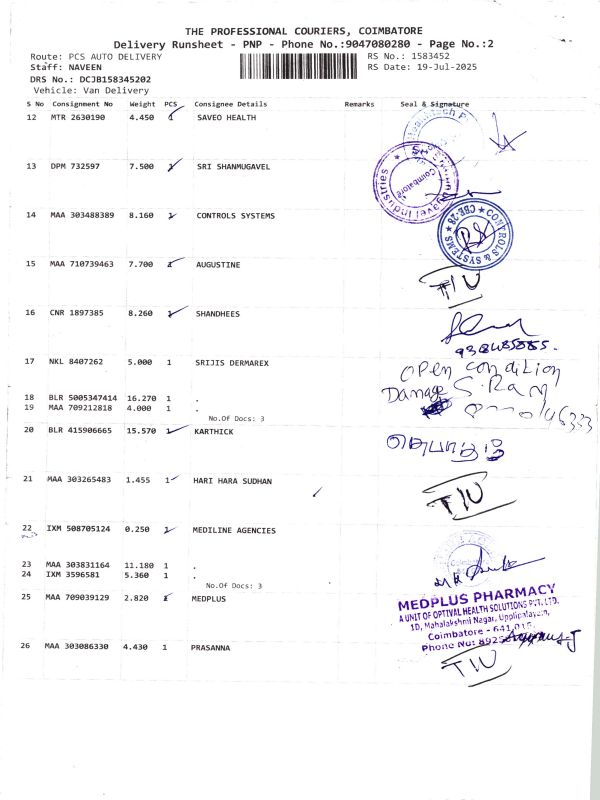 THE PROFESSIONAL COURIERS, COIMBATORE
Delivery Runsheet - PNP - Phone No.:9047080280 - Page No.:2
Route: PCS AUTO DELIVERY
RS No.: 1583452
Staff: NAVEEN
RS Date: 19-Jul-2025
DRS No.: DCJB158345202
Vehicle: Van Delivery
S No Consignment No Weight PCS Consignee Details Remarks Seal & Signature
12 MTR 2630190 4.450 1 SAVEO HEALTH
13 DPM 732597 7.500 1 SRI SHANMUGAVEL
Industries
Coimbatore
14 MAA 303488389 8.160 1 CONTROLS SYSTEMS
CONTROLS & SYSTEMS ★ CBE-28 ★
15 MAA 710739463 7.700 1 AUGUSTINE
TIU
16 CNR 1897385 8.260 1 SHANDHEES
17 NKL 8407262 5.000 1 SRIJIS DERMAREX
OPen condition
Damage S. Ram
18 BLR 5005347414 16.270 1 .
19 MAA 709212818 4.000 1 .
No.Of Docs: 3
20 BLR 415906665 15.570 1 KARTHICK
21 MAA 303265483 1.455 1 HARI HARA SUDHAN
TIU
22 IXM 508705124 0.250 1 MEDILINE AGENCIES
23 MAA 303831164 11.180 1 .
24 IXM 3596581 5.360 1 .
No.Of Docs: 3
25 MAA 709039129 2.820 1 MEDPLUS
MEDPLUS PHARMACY
A UNIT OF OPTIVAL HEALTH SOLUTIONS PVT. LTD.
1D, Mahalakshmi Nagar, Uppilipalayam,
Coimbatore - 641 015.
Phone No: 8925
26 MAA 303086330 4.430 1 PRASANNA
TIU